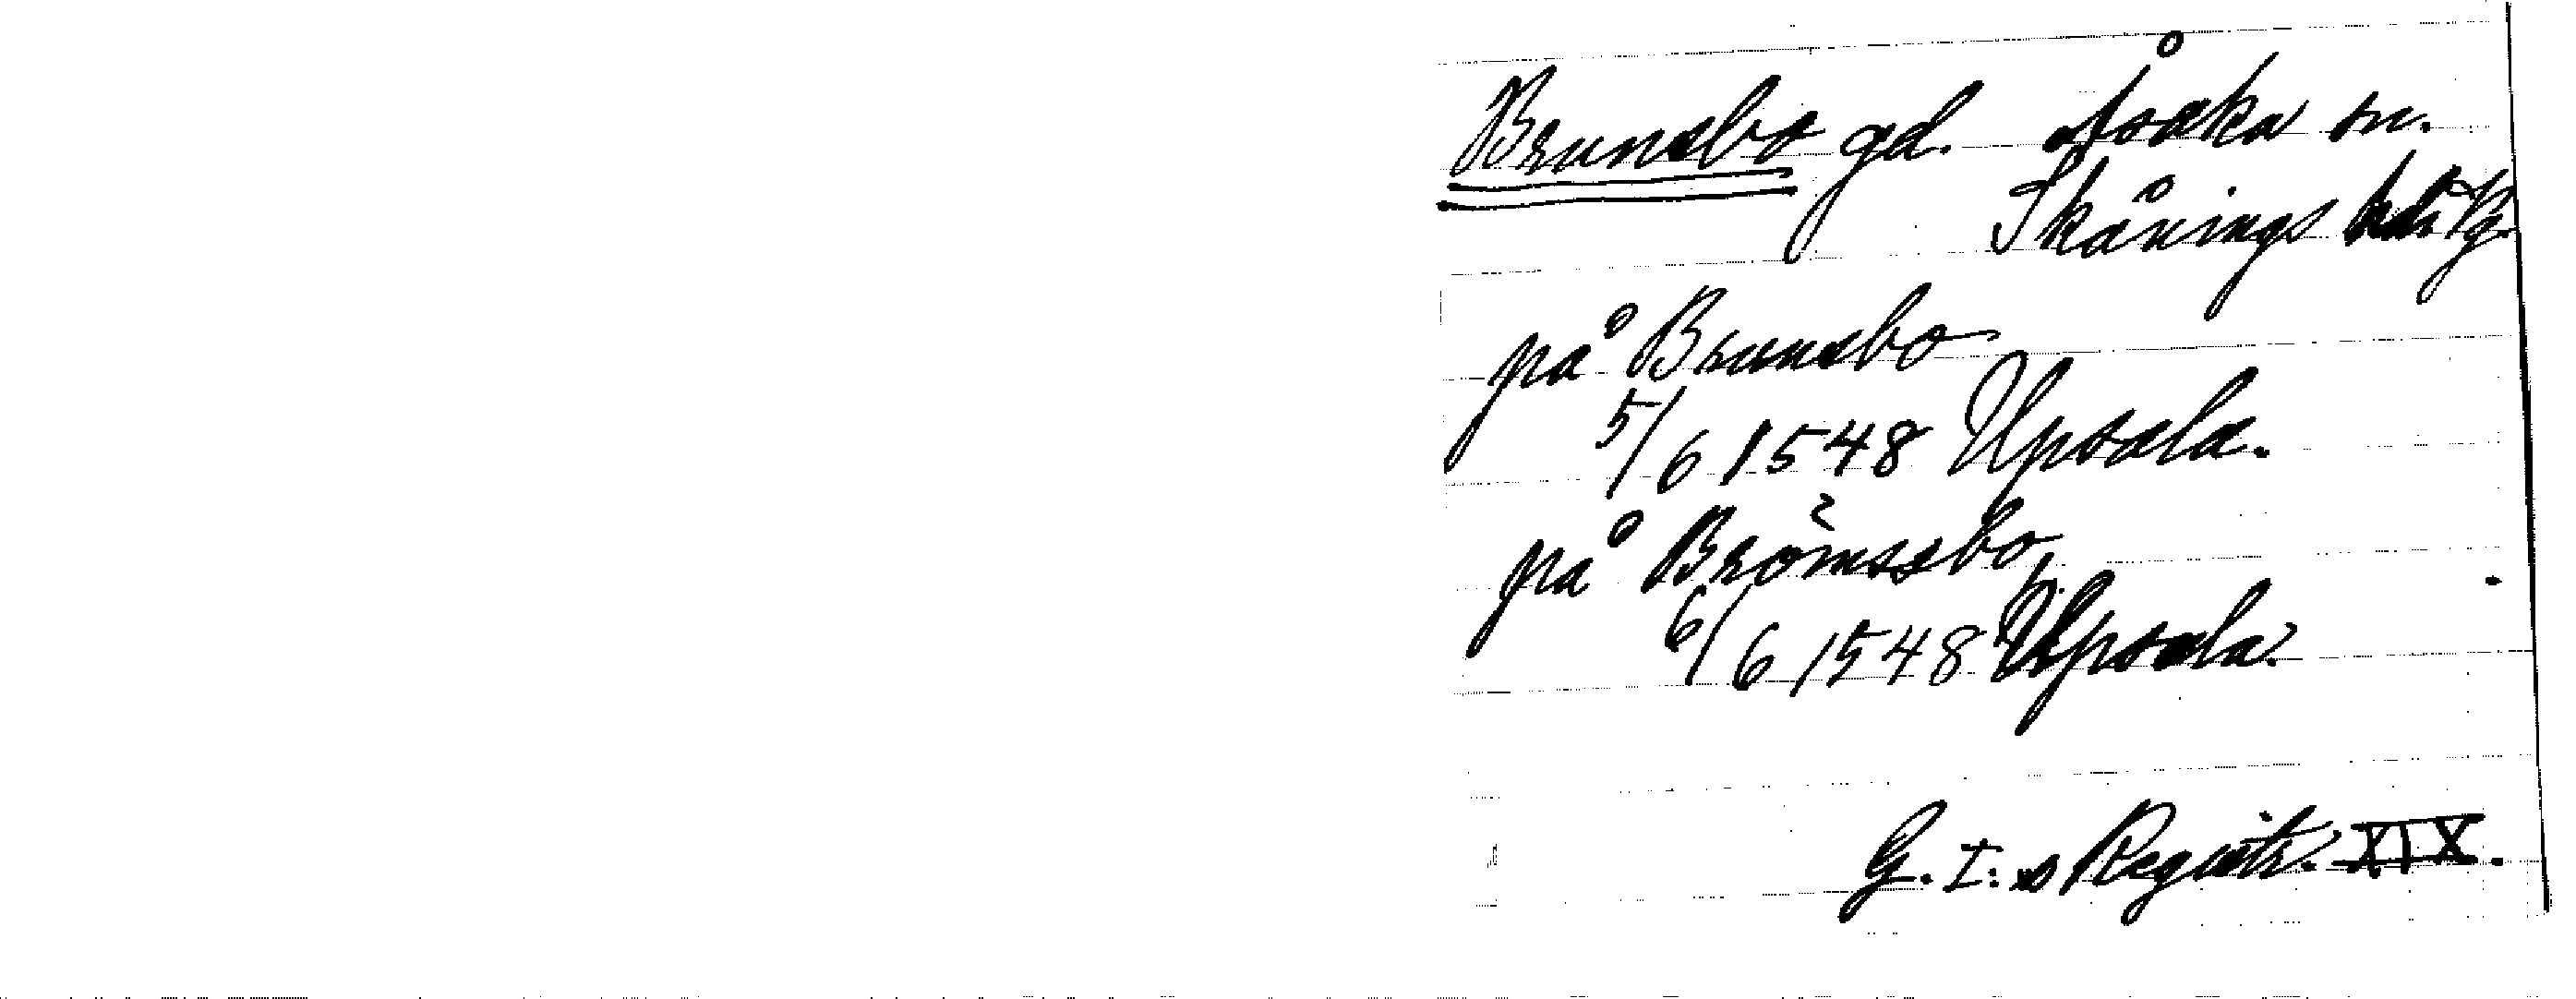 Brunsbo gd. Åsaka sn.
Skånings hd. Vg.
på Brunsbo
5/6 1548 Upsala.
på Brömssbo
6/6 1548 Upsala.
G. I:s Registr. XIX.